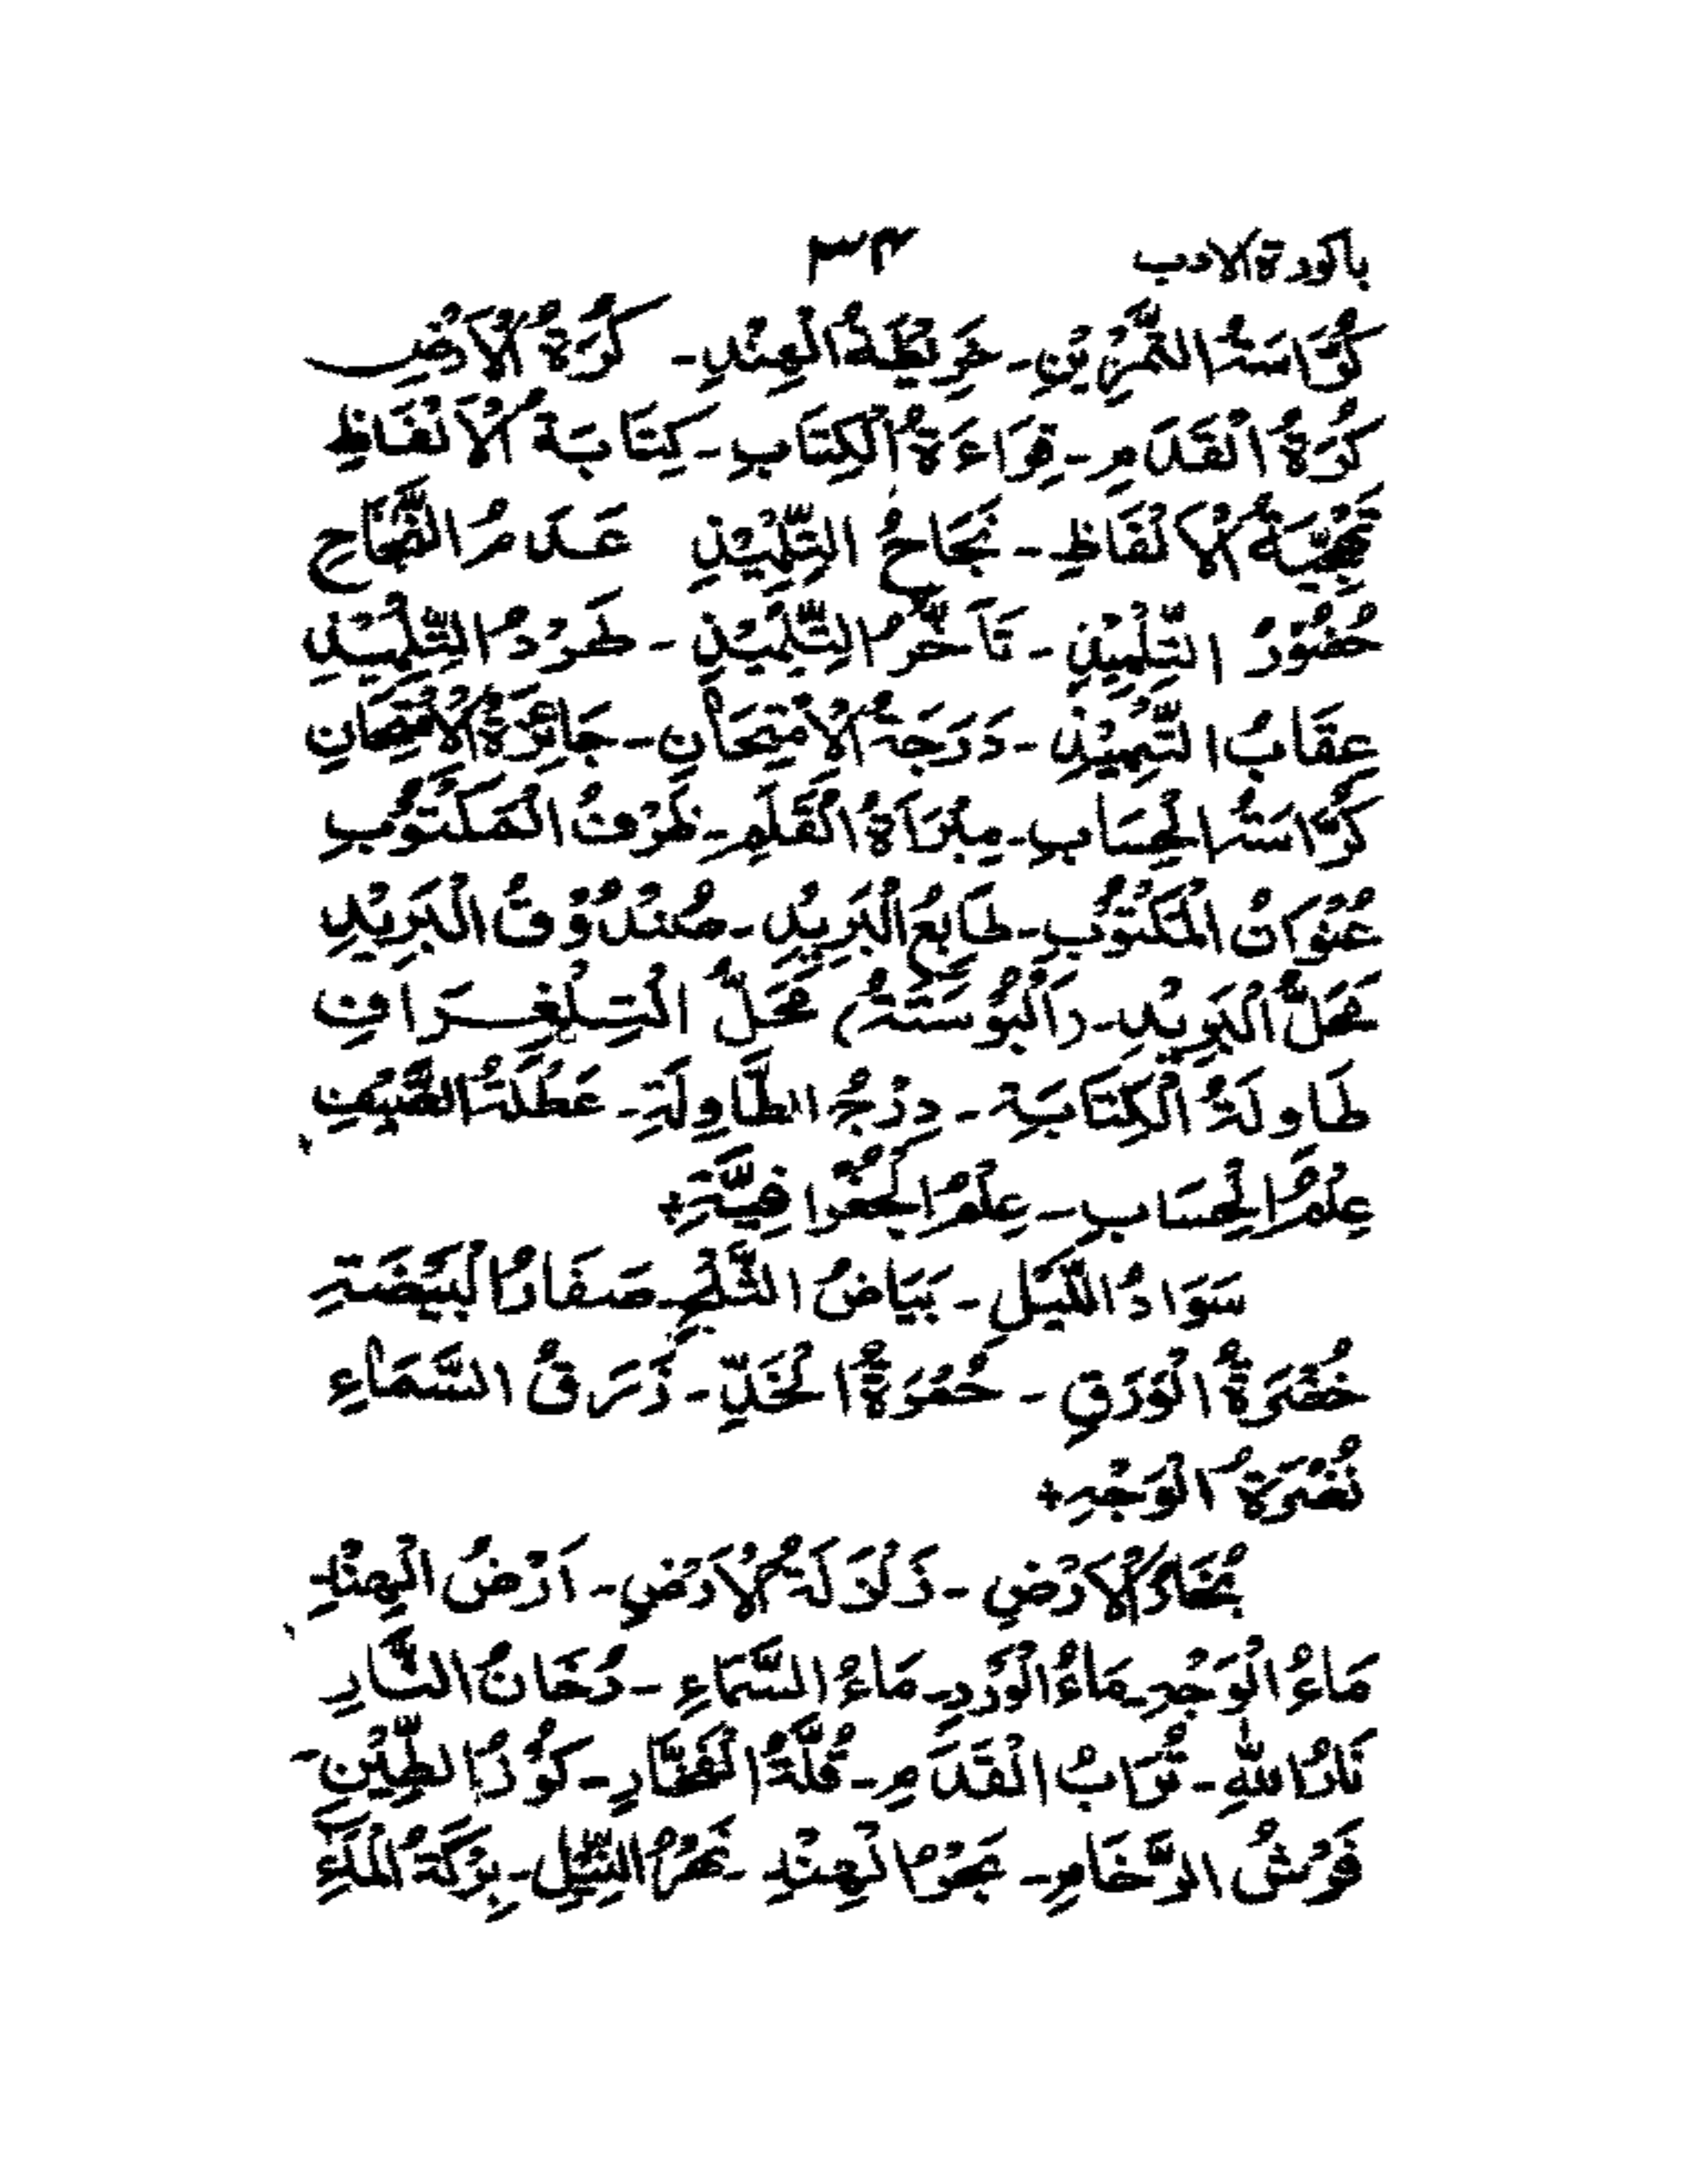 باكورة الادب ٣٣
كُرَّاسَةُ التَّمْرِيْنِ - خَرِيْطَةُ الْهِنْدِ - كُرَةُ الْاَرْضِ
كُرَةُ الْقَدَمِ - قِرَاءَةُ الْكِتَابِ - كِتَابَةُ الْاَلْفَاظِ
تَهْجِيَةُ الْاَلْفَاظِ - نَجَاحُ التِّلْمِيْذِ عَدَمُ النَّجَاحِ
حُضُوْرُ التِّلْمِيْذِ - تَأَخُّرُ التِّلْمِيْذِ - طَرْدُ التِّلْمِيْذِ
عِقَابُ التِّلْمِيْذِ - دَرَجَةُ الْاِمْتِحَانِ - جَائِزَةُ الْاِمْتِحَانِ
كُرَّاسَةُ الْحِسَابِ - مِبْرَاةُ الْقَلَمِ - ظَرْفُ الْمَكْتُوْبِ
عُنْوَانُ الْمَكْتُوْبِ - طَابِعُ الْبَرِيْدِ - صُنْدُوْقُ الْبَرِيْدِ
مَحَلُّ الْبَرِيْدِ - (اَلْبُوْسْتَةُ) مَحَلُّ التِّلِغْرَافِ
طَاوِلَةُ الْكِتَابَةِ - دِرْجُ الطَّاوِلَةِ - عُطْلَةُ الصَّيْفِ
عِلْمُ الْحِسَابِ - عِلْمُ الْجُغْرَافِيَّةِ +
سَوَادُ اللَّيْلِ - بَيَاضُ الثَّلْجِ - صَفَارُ الْبَيْضَةِ
خُضْرَةُ الْوَرَقِ - حُمْرَةُ الْخَدِّ - زَرَقُ السَّمَاءِ
نُضْرَةُ الْوَجْهِ +
بُخَارُ الْاَرْضِ - زَلْزَلَةُ الْاَرْضِ - اَرْضُ الْهِنْدِ
مَاءُ الْوَجْهِ - مَاءُ الْوَرْدِ - مَاءُ السَّمَاءِ - دُخَانُ النَّارِ
نَارُ اللهِ - تُرَابُ الْقَدَمِ - قُلَّةُ الْفَخَّارِ - كُوْزُ الطِّيْنِ -
فَرْشُ الرُّخَامِ - بَحْرُ الْهِنْدِ - نَهْرُ النِّيْلِ - بِرْكَةُ الْمَاءِ